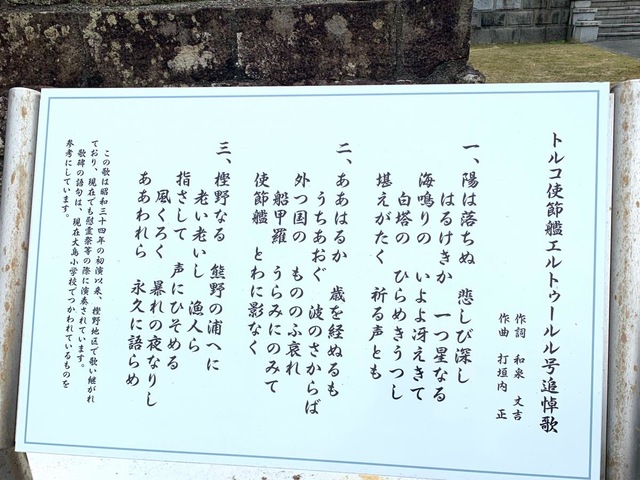 トルコ使節艦エルトゥールル号追悼歌
作詞 和泉 丈吉
作曲 打垣内 正
一、陽は落ちぬ 悲しび深し
はるけきか 一つ星なる
海鳴りの いよよ冴えきて
白塔の ひらめきうつし
堪えがたく 祈る声とも
二、ああはるか 歳を経ぬるも
うちあおぐ 波のさからば
外つ国の もののふ哀れ
船甲羅 うらみにのみて
使節艦 とわに影なく
三、樫野なる 熊野の浦へに
老い老いし 漁人ら
指さして 声にひそめる
風くろく 暴れの夜なりし
ああわれら 永久に語らめ
この歌は昭和三十四年の初演以来、樫野地区で歌い継がれ
ており、現在でも慰霊祭等の際に演奏されています。
歌碑の語句は、現在大島小学校でつかわれているものを
参考にしています。